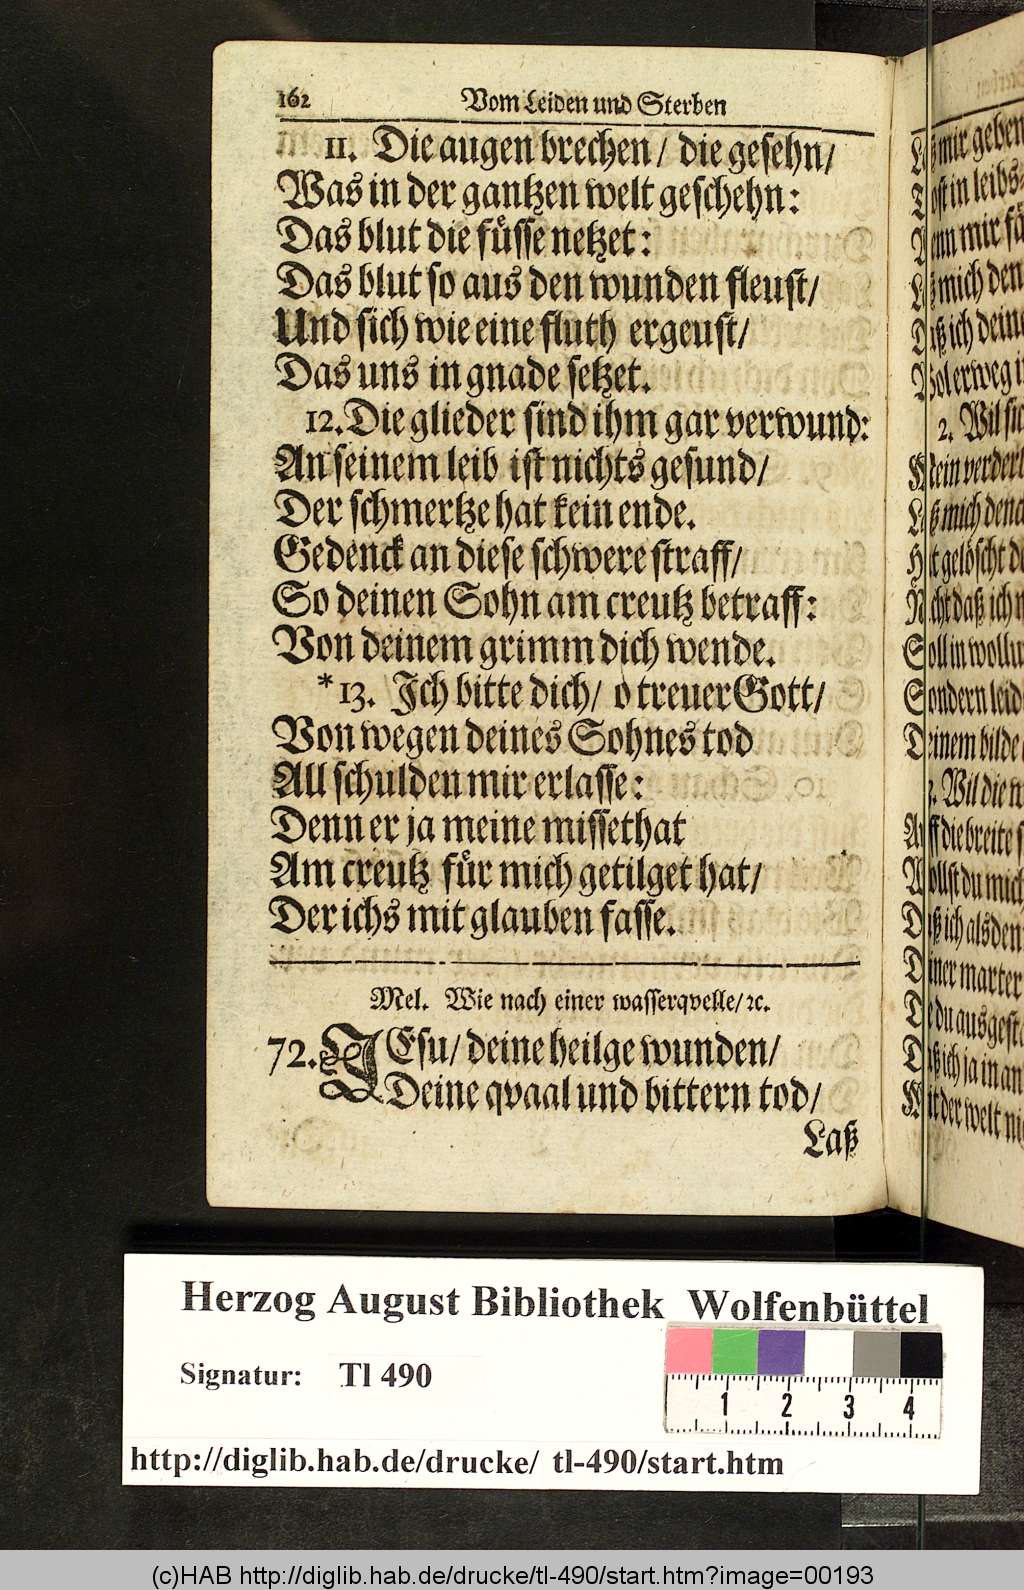 162 Vom Leiden und Sterben
11. Die augen brechen / die gesehn /
Was in der gantzen welt geschehn:
Das blut die füsse netzet:
Das blut so aus den wunden fleust /
Und sich wie eine fluth ergeust /
Das uns in gnade setzet.
12. Die glieder sind ihm gar verwund:
An seinem leib ist nichts gesund /
Der schmertze hat kein ende.
Gedenck an diese schwere straff /
So deinen Sohn am creutz betraff:
Von deinem grimm dich wende.
*13. Ich bitte dich / o treuer Gott /
Von wegen deines Sohnes tod
All schulden mir erlasse:
Denn er ja meine missethat
Am creutz für mich getilget hat /
Der ichs mit glauben fasse.
Mel. Wie nach einer wasserqvelle / ꝛc.
72. JEsu / deine heilge wunden /
Deine qvaal und bittern tod /
Laß
mir geben
in leibs-
mir
mich den
ich deine
er weg
2. Wil
Mein
mich
gelöscht
daß ich
Soll in
Sondern leid
Deinem bilde
Wil die
Auff die breite
Wollst du mich
ich als
Deiner marter
du
ich ja in
Mit der welt
Herzog August Bibliothek Wolfenbüttel
Signatur: Tl 490
1 2 3 4
http://diglib.hab.de/drucke/ tl-490/start.htm
(c)HAB http://diglib.hab.de/drucke/tl-490/start.htm?image=00193